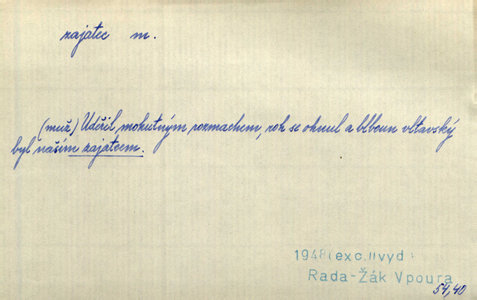 zajatec m.
(muž) Udeřil mohutným rozmachem, roh se ohnul a blboun vltavský
byl naším zajatcem.
1948 (exc. II vyd.)
Rada-Žák Vpoura
54,40